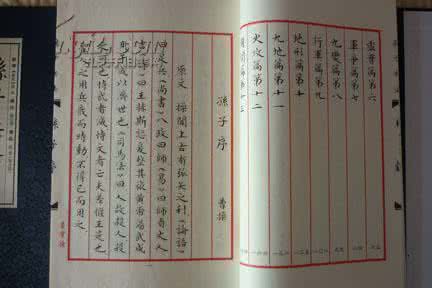 虛實篇第六
軍爭篇第七
九變篇第八
行軍篇第九
地形篇第十
九地篇第十一
火攻篇第十二
用間篇第十三
孫子序
曹操
原文 操聞上古有弧矢之利《論語》
曰足兵《尚書》八政曰師《易》曰師貞丈人
吉《詩》曰王赫斯怒爰整其旅黃帝湯武咸
用干戚以濟世也《司馬法》曰人故殺人殺
之可也恃武者滅恃文者亡夫差偃王是也
聖人之用兵戢而時動不得已而用之